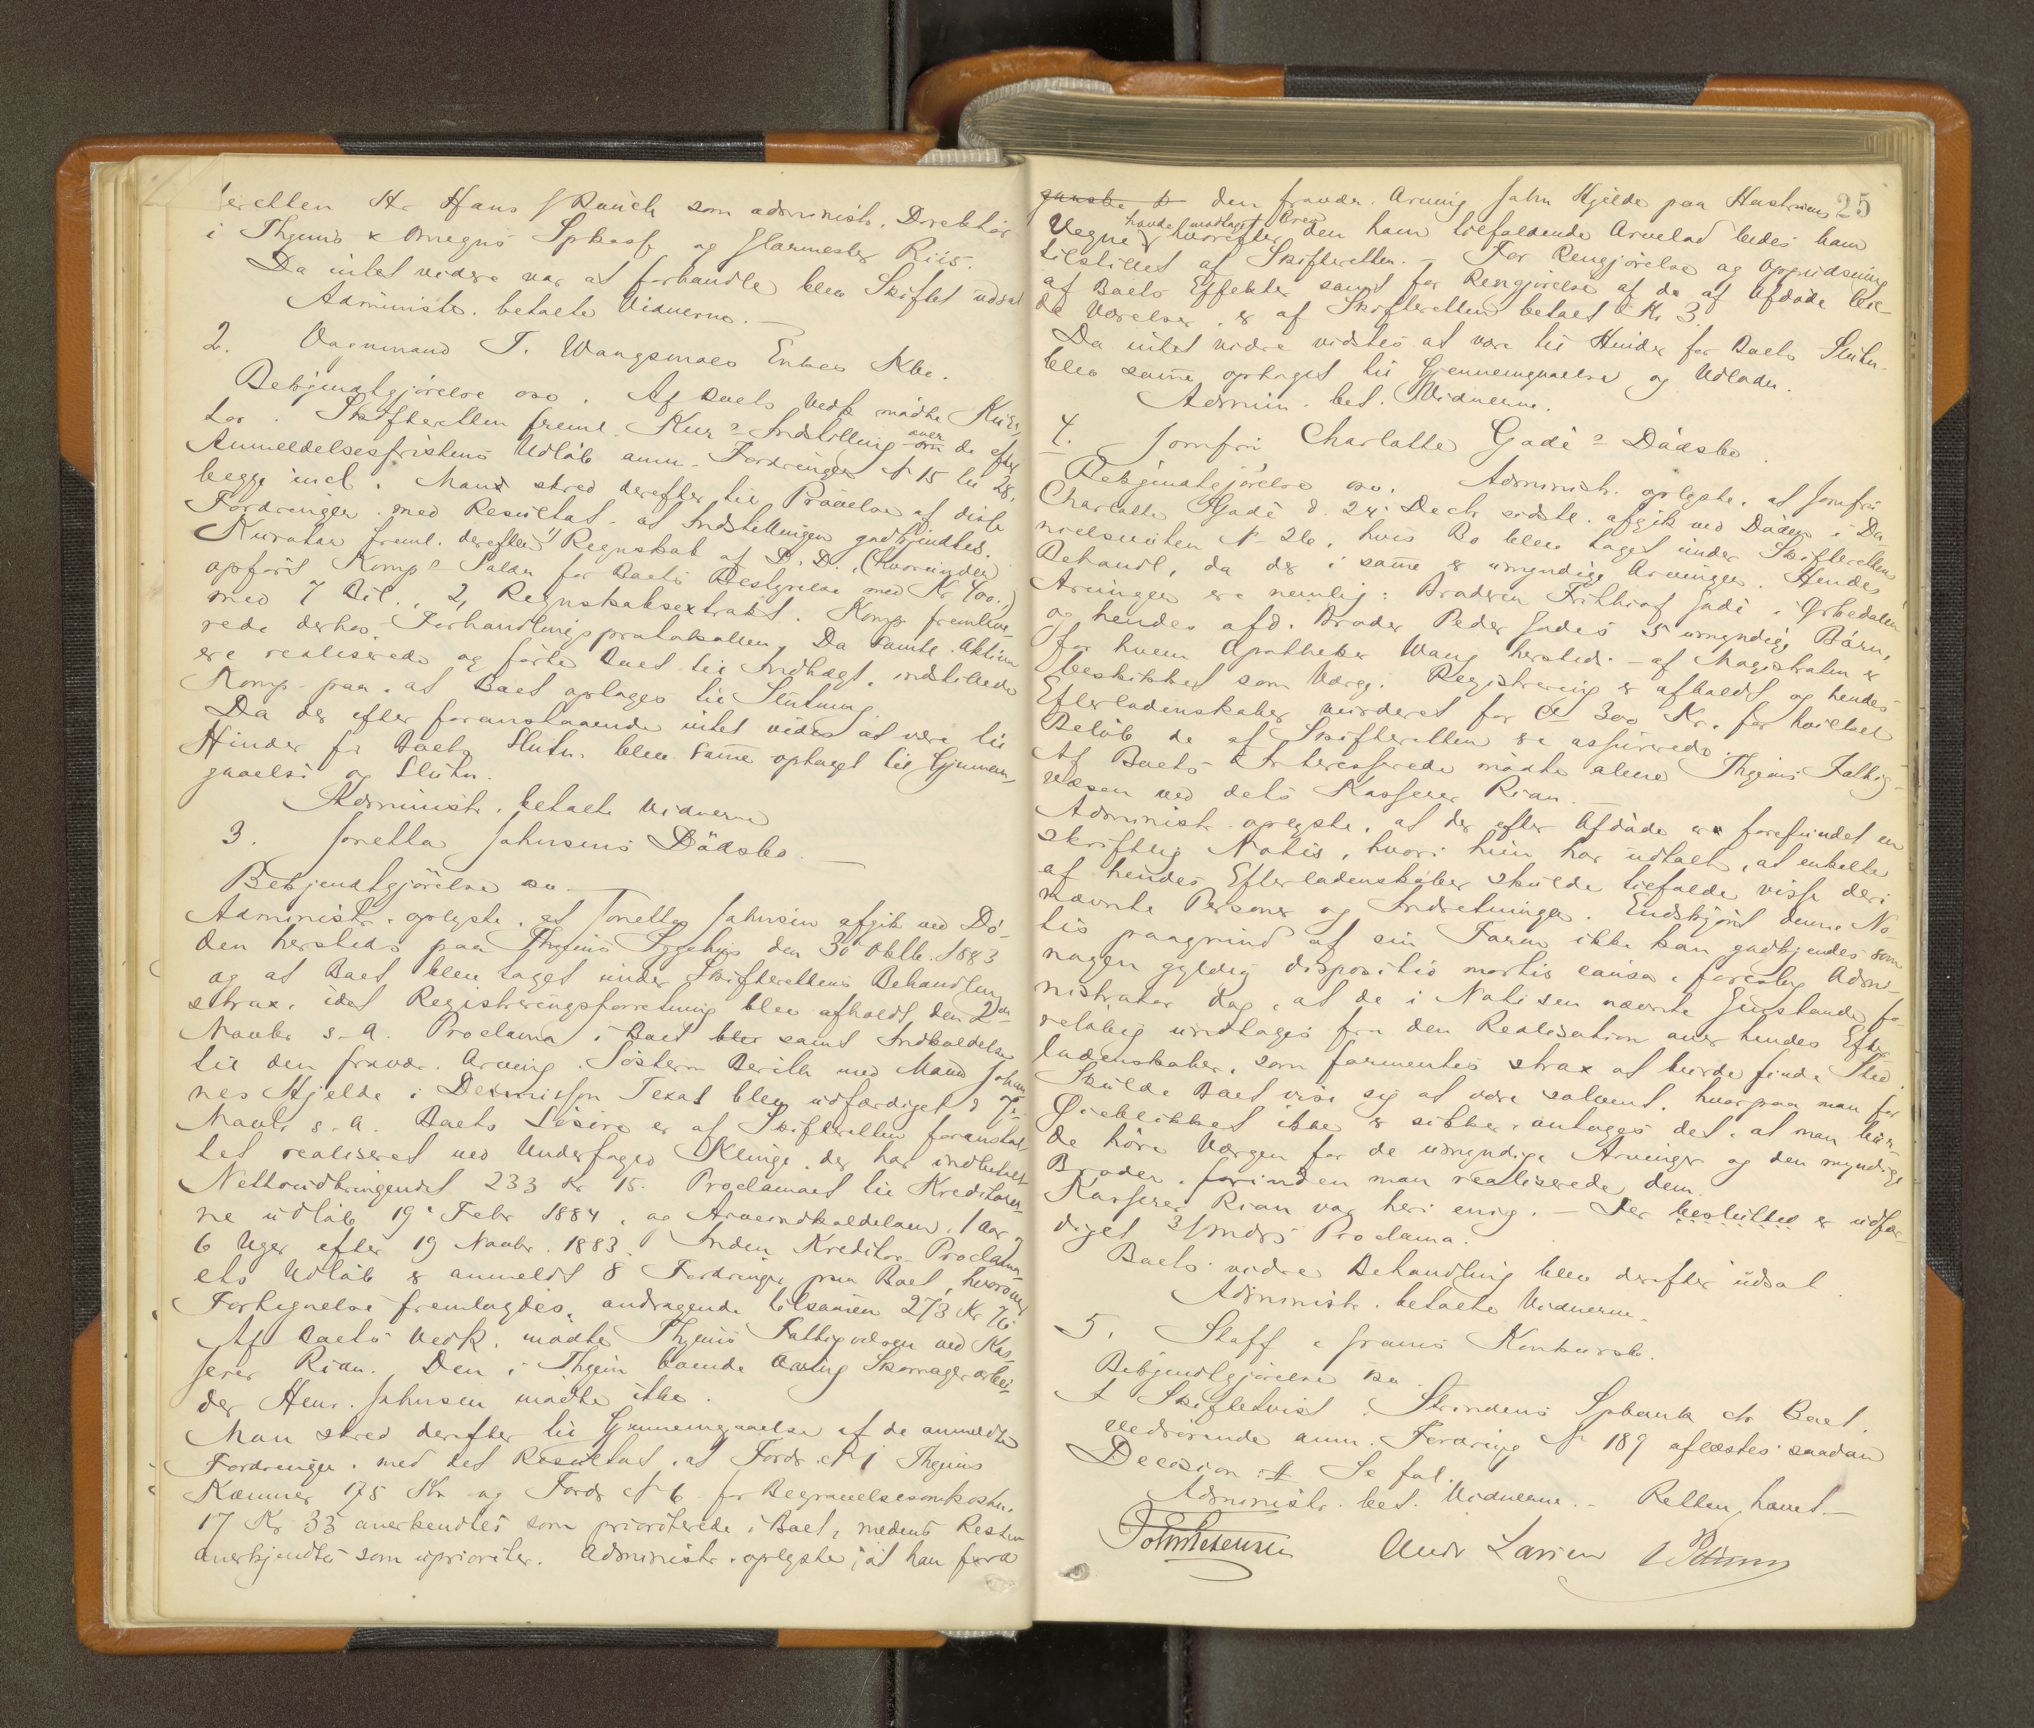 eretten Hr Hans J Rauch som administr. Direktør
i Thjems & Omegns Spkasse og Glarmester Riis.
Da intet videre var at forhandle blev Skiftet udsat
Administr. betalte Vidnerne. —
2. Vognmand T. Wangsmoes Enkes Kbo.
Bekjendtgjørelse oso. Af Boets Vedk mødte Kura-
tor. Skifteretten freml. Kurs Indstilling over de efter
Anmeldelsesfristens Udløb anm. Fordringer № 15 til 28,
begge incl. Man skred derefter til Prøvelse af disse
Fordringer med Resultat at Indstillingen godkjendtes.
Kurator freml. derefter 1, Regnskab af D. D., (hvorunder
opført Komp s Salær for Boets Bestyrelse med Kr 400.)
med 7 Bil., 2, Regnskabsextrakt. Komp. fremleve-
rede derhos Forhandlingsprotokollen. Da samtl. Aktiva
ere realiserede og førte Boet til Indtægt, indstillede
Komp. paa, at Boet optoges til Slutning.
Da der efter foranstaaende intet vides at være til
Hinder for Boets Slutn. blev samme optaget til Gjennem-
gaaelse og Slutn.
Administr. betalte Vidnerne
3. Jonetta Johnsens Dødsbo. —
Bekjendtgjørelse oso. —
Administr. oplyste, at Jonetta Johnsen afgik ved Dø-
den hersteds paa Thjems Sygehus den 30 Oktb. 1883
og at Boet blev taget under Skifterettens Behandling
strax, idet Registreringsforretning blev afholdt den 2den
Novbr s. A. Proclama i Boet blev samt Indkaldelse
til den fravær. Arving, Søsteren Berith med Mand Johan-
nes Hjelde i Dennison Texas blev udfærdiget d 7de
Novbr s. A. Boets Løsøre er af Skifteretten foranstal-
tet realiseret ved Underfoged Klinge, der har indbetalt
Nettoudbringendet 233 Kr 15. Proclamaet til Kreditorer-
ne udløb 19 Febr 1884, og Arveindkaldelsen 1 Aar &
6 Uger efter 19 Novbr. 1883. Inden Kreditor Proclama-
ets Udløb er anmeldt 8 Fordringer paa Boet, hvorover
Fortegnelse fremlagdes, andragende tilsammen 273 Kr 76
Af Boets Vedk. mødte Thjems Fattigvæsen ved Kas-
serer Rian. Den i Thjem boende Arving Skomagerarbei-
der Henr. Johnsen mødte ikke.
Man skred derefter til Gjennemgaaelse af de anmeldte
Fordringer, med det Resultat, at Fordr. № 1 Thjems
Kæmner 175 Kr og Fordr № 6 for Begravelsesomkostn.
17 Kr 33 anerkendtes som prioriterede i Boet, medens Resten
anerkjendtes som uprioriter. Administr. oplyste, at han fra
25
ganske den fravær. Arving John Hjelde paa Hustruens
Vegne havde modtaget Arv hvorefter den ham tilfaldende Arvelod bedes ham
tilstillet af Skifteretten. — For Rengjørelse og Oppudsning
af Boets Effekter samt for Rengjørelse af de af Afdøde bebo-
de Værelser, er af Skifteretten betalt Kr 3.
Da intet videre vidstes at være til Hinder for Boets Slutn.
blev samme optaget til Gjennemgaaelse og Udlodn.
Admin. bet. Vidnerne.
4. Jomfru Charlotte Gadè s Dødsbo.
Bekjendtgjørelse oso. Administr. oplyste, at Jomfru
Charlotte Gadè d. 24. Decb. sidstl. afgik ved Døden i Da-
nielsveiten № 2b, hvis Bo blev taget under Skifterettens
Behandl., da der i samme er umyndige Arvinger. Hendes
Arvinger ere nemlig: Broderen Frithiof Gadè i Ørkedalen
og hendes afd. Broder Peder Gadès 5 umyndige Børn,
for hvem Apotheker Wang hersteds af Magistraten er
beskikket som Værge. Registrering er afholdt og hendes
Efterladenskaber vurderet for Ca 300 Kr, for hvilket
Beløb de af Skifteretten er assurerede.
Af Boets Interesserede mødte alene Thjems Fattig-
væsen ved dets Kasserer Rian. —
Administr. oplyste, at der efter Afdøde er forefundet en
skriftlig Notis, hvori hun har udtalt, at enkelte
af hendes Efterladenskaber skulde tilfalde visse deri
nævnte Personer og Indretninger. Endskjønt denne No-
tis paagrund af sin Form ikke kan godkjendes som
nogen gyldig dispositio mortis causa, foreslog Admi-
nistrator dog, at de i Notisen nævnte Gjenstande fo-
reløbig undtages fra den Realisation over hendes Efter-
ladenskaber, som formentes strax at burde finde Sted.
Skulde Boet vise sig at være solvent, hvorpaa man for
Øieblikket ikke er sikker, antages det, at man bur-
de høre Værgen for de umyndige Arvinger og den myndige
Broder, forinden man realiserede dem.
Kasserer Rian var heri enig. — Der besluttes er udfær-
diget 3 Mnds Proclama.
Boets videre Behandling blev derefter udsat.
Administr. betalte Vidnerne.
5. Staff & Grams Konkursbo.
Bekjendtgjørelse oso
I Skiftetvist: Strindens Spbank ctr Boet
vedrørende anm. Fordring № 189 aflæstes saadan
Decision: Se fol.
Administr. bet. Vidnerne. — Retten hævet. —
Andr Larsen